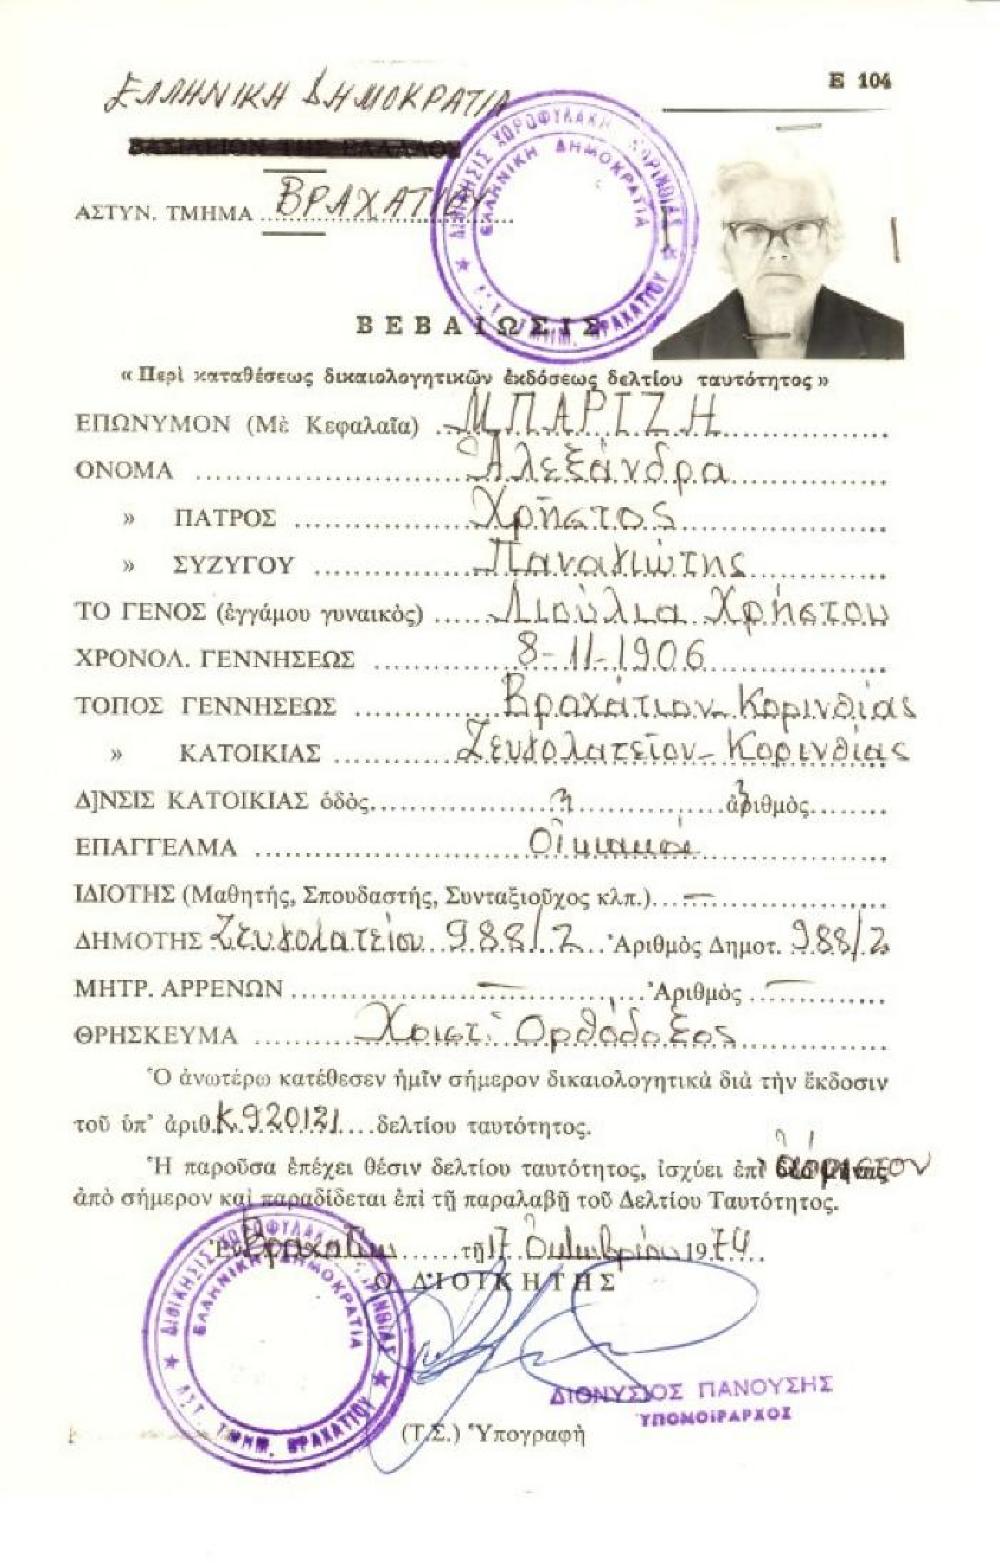 Ε 104
ΕΛΛΗΝΙΚΗ ΔΗΜΟΚΡΑΤΙΑ
ΒΑΣΙΛΕΙΟΝ ΤΗΣ ΕΛΛΑΔΟΣ
ΑΣΤΥΝ. ΤΜΗΜΑ ΒΡΑΧΑΤΙΟΥ
ΔΙΟΙΚΗΣΙΣ ΧΩΡΟΦΥΛΑΚΗΣ ΚΟΡΙΝΘΙΑΣ
ΕΛΛΗΝΙΚΗ ΔΗΜΟΚΡΑΤΙΑ
ΑΣΤ. ΤΜΗΜ. ΒΡΑΧΑΤΙΟΥ
ΒΕΒΑΙΩΣΙΣ
«Περὶ καταθέσεως δικαιολογητικῶν ἐκδόσεως δελτίου ταυτότητος»
ΕΠΩΝΥΜΟΝ (Μὲ Κεφαλαῖα) ΜΠΑΡΤΖΗ
ΟΝΟΜΑ Ἀλεξάνδρα
» ΠΑΤΡΟΣ Χρῆστος
» ΣΥΖΥΓΟΥ Παναγιώτης
ΤΟ ΓΕΝΟΣ (ἐγγάμου γυναικὸς) Λιούλια Χρήστου
ΧΡΟΝΟΛ. ΓΕΝΝΗΣΕΩΣ 8-11-1906
ΤΟΠΟΣ ΓΕΝΝΗΣΕΩΣ Βραχάτιον-Κορινθίας
» ΚΑΤΟΙΚΙΑΣ Ζευγολατεῖον-Κορινθίας
Δ]ΝΣΙΣ ΚΑΤΟΙΚΙΑΣ ὁδὸς ἀριθμὸς
ΕΠΑΓΓΕΛΜΑ Οἰκιακά
ΙΔΙΟΤΗΣ (Μαθητής, Σπουδαστής, Συνταξιοῦχος κλπ.) —
ΔΗΜΟΤΗΣ Ζευγολατείου 988/2 Ἀριθμὸς Δημοτ. 988/2
ΜΗΤΡ. ΑΡΡΕΝΩΝ — Ἀριθμὸς —
ΘΡΗΣΚΕΥΜΑ Χριστ. Ορθόδοξος
Ὁ ἀνωτέρω κατέθεσεν ἡμῖν σήμερον δικαιολογητικὰ διὰ τὴν ἔκδοσιν
τοῦ ὑπ' ἀριθ. Κ 920121 δελτίου ταυτότητος.
Ἡ παροῦσα ἐπέχει θέσιν δελτίου ταυτότητος, ἰσχύει ἐπὶ ἀόριστον
ἀπὸ σήμερον καὶ παραδίδεται ἐπὶ τῇ παραλαβῇ τοῦ Δελτίου Ταυτότητος.
Ἐν Βραχατίῳ τῇ 17 Ὀκτωβρίου 1974
Ο ΔΙΟΙΚΗΤΗΣ
ΔΙΟΙΚΗΣΙΣ ΧΩΡΟΦΥΛΑΚΗΣ ΚΟΡΙΝΘΙΑΣ
ΕΛΛΗΝΙΚΗ ΔΗΜΟΚΡΑΤΙΑ
ΑΣΤ. ΤΜΗΜ. ΒΡΑΧΑΤΙΟΥ
ΔΙΟΝΥΣΙΟΣ ΠΑΝΟΥΣΗΣ
ΥΠΟΜΟΙΡΑΡΧΟΣ
(Τ.Σ.) Ὑπογραφὴ